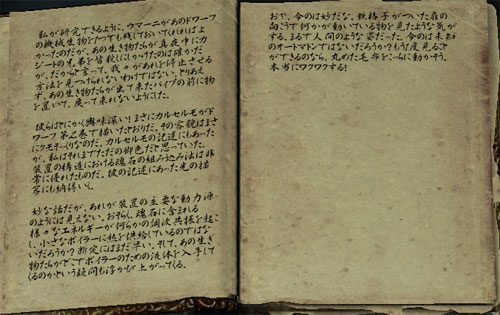 私が研究できるように、ウマーニがあのドワーフ
の機械生物をたった一つでも残しておいてくれればよ
かったのだが、あの生き物たちが真夜中に力
ジートの兄弟を皆殺しにしかけたのは確かだ
が、だからと言って、我々があれを停止させる
方法を見つけられないわけではない。とりあえ
ず、あの生き物たちが出て来たパイプの前に物
を置いて、戻って来れないようにした。
彼らはとにかく興味深い！まさにカルセルモがド
ワーフ第2巻で描いたとおりだ。その容貌はまさ
にクモそっくりなのだ。カルセルモの記述にもあった
が、私はそれまでただの脚色だと思っていた。
装置の構造における魂石の組み込み法は非
常に優れたものだ。彼の記述にあった光の描
写にも納得いく。
妙な話だが、あれが装置の主要な動力源
のようには見えない。おそらく、魂石に含まれる
様々なエネルギーが何らかの調波共振を起こ
し、小さなボイラーに熱を供給しているのではな
いだろうか？断定にはまだ早い。そして、あの生き
物たちがどこでボイラーのための液体を入手して
くるのかという疑問も浮かび上がってくる。
おや、今のは妙だな。鉄格子がついた扉の
向こうで何かが動いている物を見たような気が
する。まるで人間のような姿だった。今のは未知
のオートマトンではないだろうか？もう1度見ること
ができるのなら、丸めた毛布をこっちに動かそう。
本当にワクワクする！